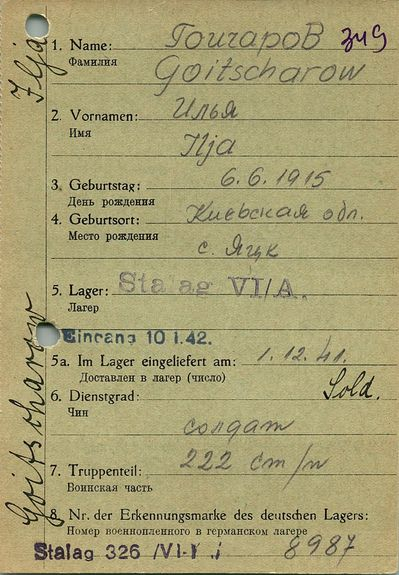 Ilja
Goitscharow
1. Name: Гончаров
Фамилия
Goitscharow
2. Vornamen: Илья
Имя
Ilja
3. Geburtstag: 6.6.1915
День рождения
4. Geburtsort: Киевская обл.
Место рождения
с. Яцк
5. Lager: Stalag VI/A.
Лагер
Eingang 10 I. 42.
5a. Im Lager eingeliefert am: 1. 12. 41.
Доставлен в лагер (число)
6. Dienstgrad: Sold.
Чин
солдат
7. Truppenteil: 222 ст/п
Воинская часть
8. Nr. der Erkennungsmarke des deutschen Lagers:
Номер военнопленного в германском лагере
Stalag 326 /VI-K 8987